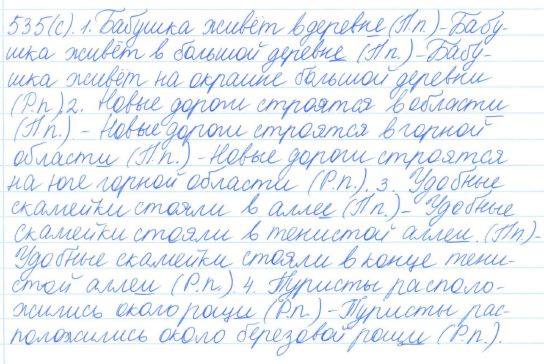 535(с). 1. Бабушка живёт в деревне (П.п.) - Бабу-
шка живёт в большой деревне (П.п.) - Бабу-
шка живёт на окраине большой деревни
(Р.п.) 2. Новые дороги строятся в области
(П.п.) - Новые дороги строятся в горной
области (П.п.) - Новые дороги строятся
на юге горной области (Р.п.). 3. Удобные
скамейки стояли в аллее (П.п.) - Удобные
скамейки стояли в тенистой аллеи. (П.п) -
Удобные скамейки стояли в конце тени-
стой аллеи (Р.п.) 4. Туристы располо-
жились около рощи (Р.п.) - Туристы рас-
положились около березовой рощи (Р.п.).